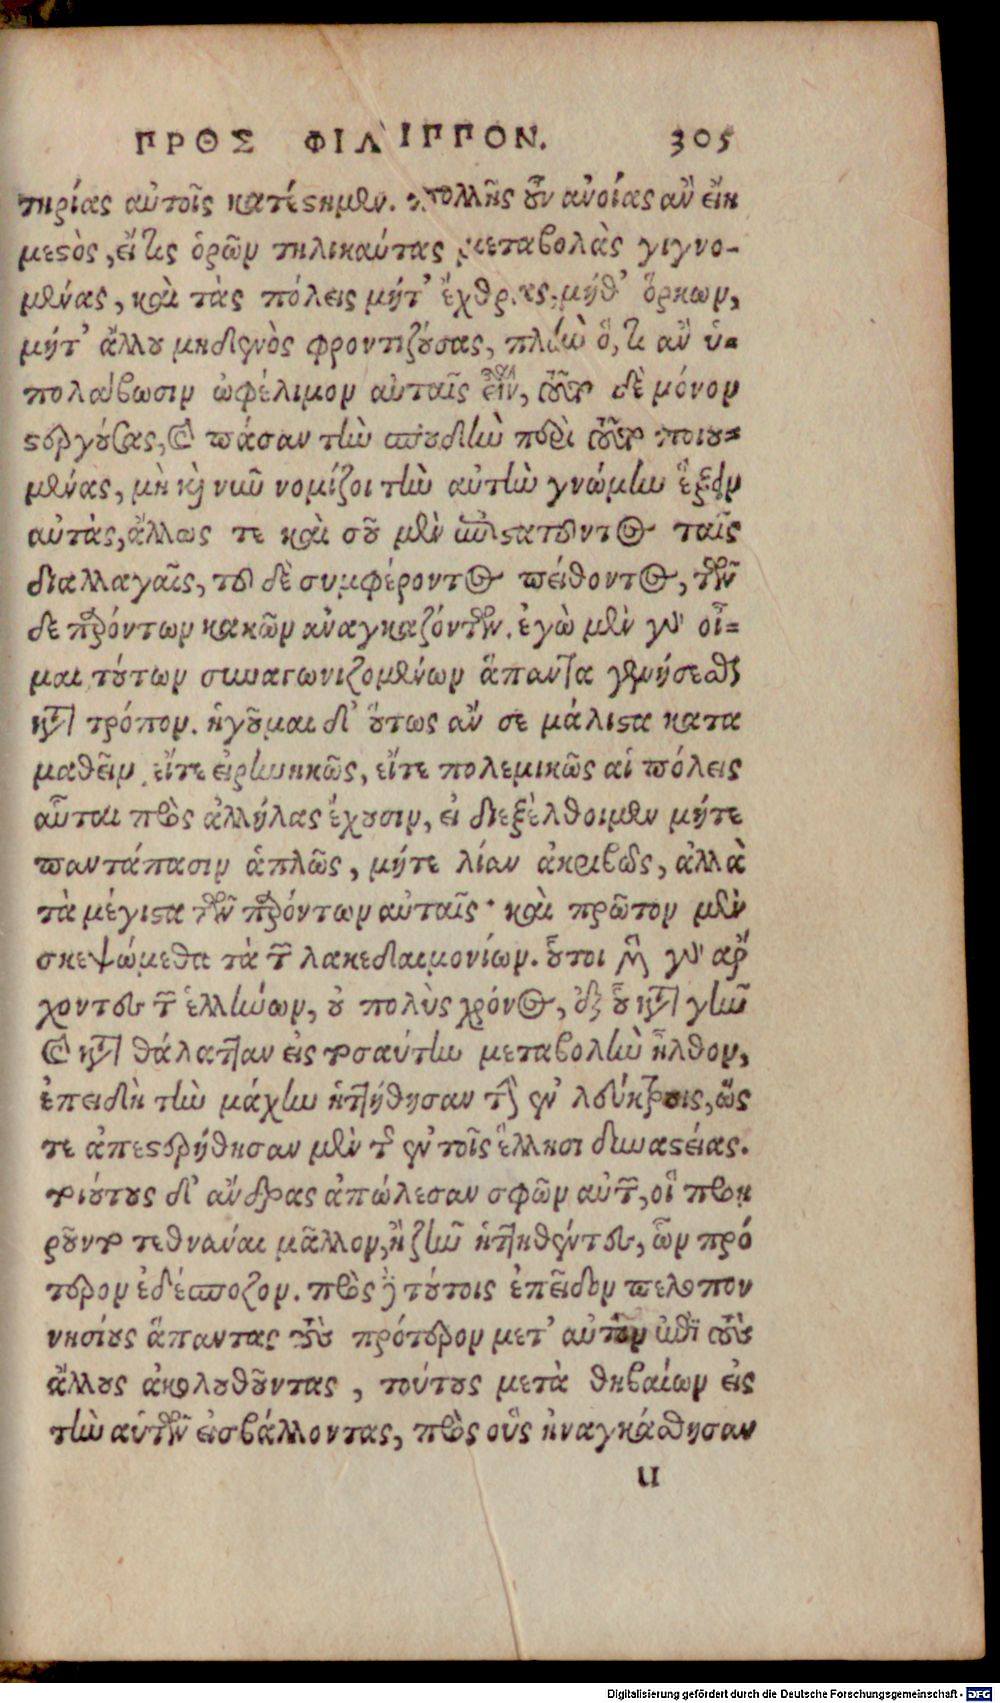 ΠΡΟΣ ΦΙΛΙΠΠΟΝ. 305
τηρίας αὐτοῖς κατέστημεν. πολλῆς οὖν ἀνοίας ἂν εἴη
μεστὸς, εἴ τις ὁρῶν τηλικαύτας μεταβολὰς γιγνο-
μένας, καὶ τὰς πόλεις μήτ' ἔχθρας, μήθ' ὅρκων,
μήτ' ἄλλου μηδενὸς φροντιζούσας, πλὴν ὅ, τι ἂν ὑ-
πολάβωσιν ὠφέλιμον αὐταῖς εἶναι, τοῦτο δὲ μόνον
στεργούσας, καὶ πᾶσαν τὴν σπουδὴν περὶ τοῦτο ποιου-
μένας, μὴ καὶ νῦν νομίζοι τὴν αὐτὴν γνώμην ἕξειν
αὐτὰς, ἄλλως τε καὶ σοῦ μὲν ἐπιστατοῦντος ταῖς
διαλλαγαῖς, τοῦ δὲ συμφέροντος πείθοντος, τῶν
δε παρόντων κακῶν ἀναγκαζόντων. ἐγὼ μὲν γὰρ οἶ-
μαι, τούτων συναγωνιζομένων ἅπαντα γενήσεσθαι
κατὰ τρόπον. ἡγοῦμαι δ' οὕτως ἄν σε μάλιστα κατα
μαθεῖν, εἴτε εἰρηνικῶς, εἴτε πολεμικῶς αἱ πόλεις
αὗται πρὸς ἀλλήλας ἔχουσιν, εἰ διεξέλθοιμεν μήτε
παντάπασιν ἁπλῶς, μήτε λίαν ἀκριβῶς, ἀλλὰ
τὰ μέγιστα τῶν παρόντων αὐταῖς· καὶ πρῶτον μὲν
σκεψώμεθα τὰ τῶν λακεδαιμονίων. οὗτοι μὲν γὰρ ἄρ
χοντες τῶν ἑλλήνων, οὐ πολὺς χρόνος, ἐξ οὗ κατὰ γῆν
καὶ κατὰ θάλατταν εἰς τοσαύτην μεταβολὴν ἦλθον,
ἐπειδὴ τὴν μάχην ἡττήθησαν τὴν ἐν λεύκτροις, ὥς
τε ἀπεστερήθησαν μὲν τῆς ἐν τοῖς ἕλλησι δυναστείας.
τοιούτους δ' ἄνδρας ἀπώλεσαν σφῶν αὐτῶν, οἳ προῃ
ροῦντο τεθνάναι μᾶλλον, ἢ ζῆν ἡττηθέντες, ὧν πρό
τερον ἐδέσποζον. πρὸς δὲ τούτοις ἐπεῖδον πελοπον
νησίους ἅπαντας τοὺς πρότερον μετ' αὐτῶν ἐπὶ τοὺς
ἄλλους ἀκολουθοῦντας, τούτους μετὰ θηβαίων εἰς
τὴν αὑτῶν εἰσβάλλοντας, πρὸς οὓς ἠναγκάσθησαν
u
Digitalisierung gefördert durch die Deutsche Forschungsgemeinschaft - DFG